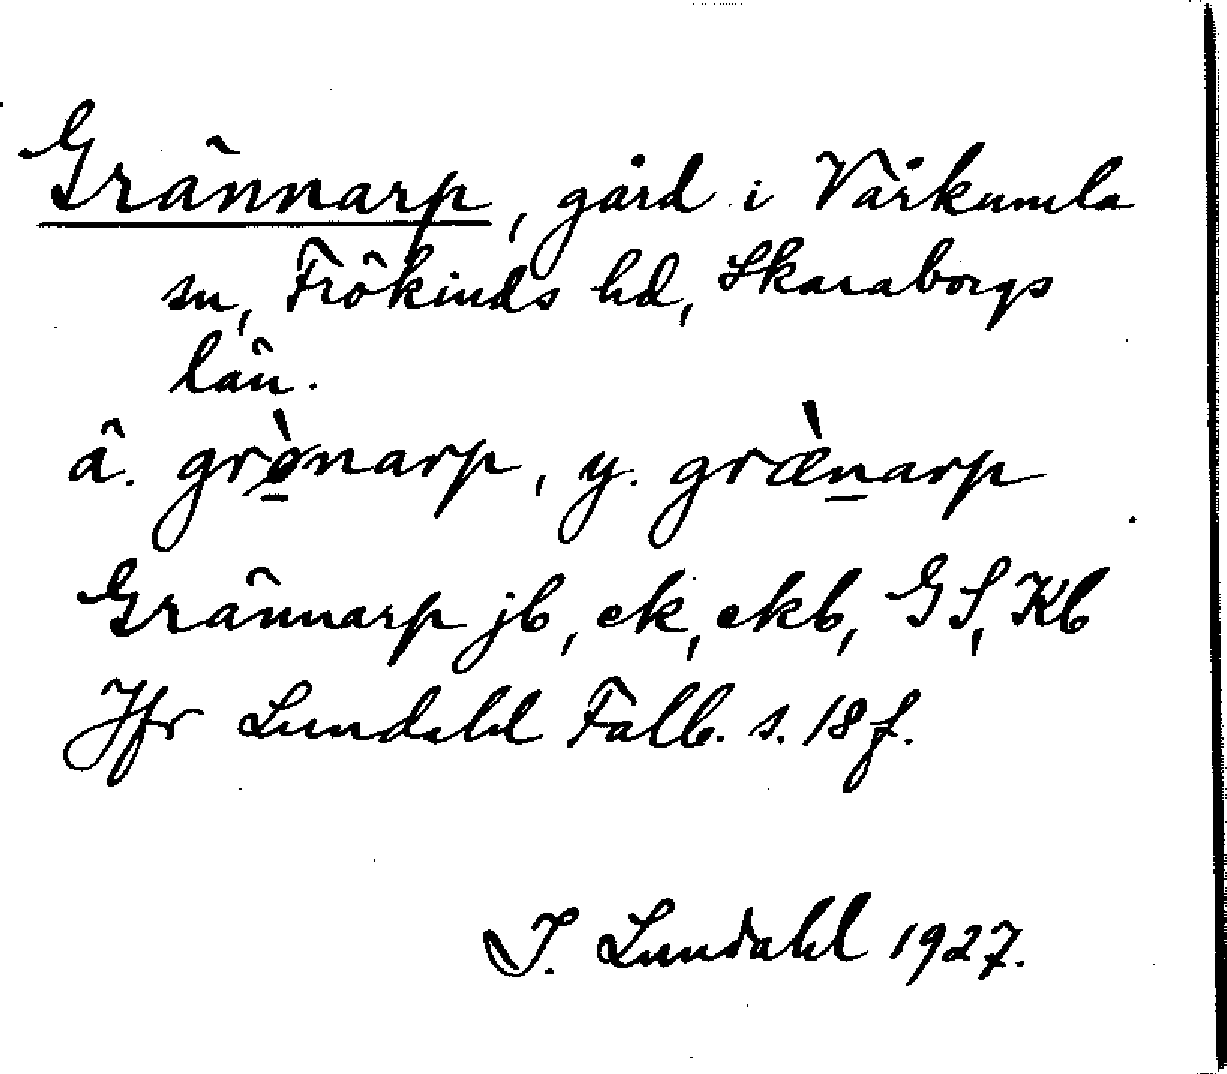 Grännarp, gård i Vårkumla
sn, Frökinds hd, Skaraborgs
län.
ä. grø̱̀narp, y. græ̀ṉarp
Grännarp jb, ek, ekb, GS, Kb
Jfr Lundahl Falb. s. 18 f.
I. Lundahl 1927.